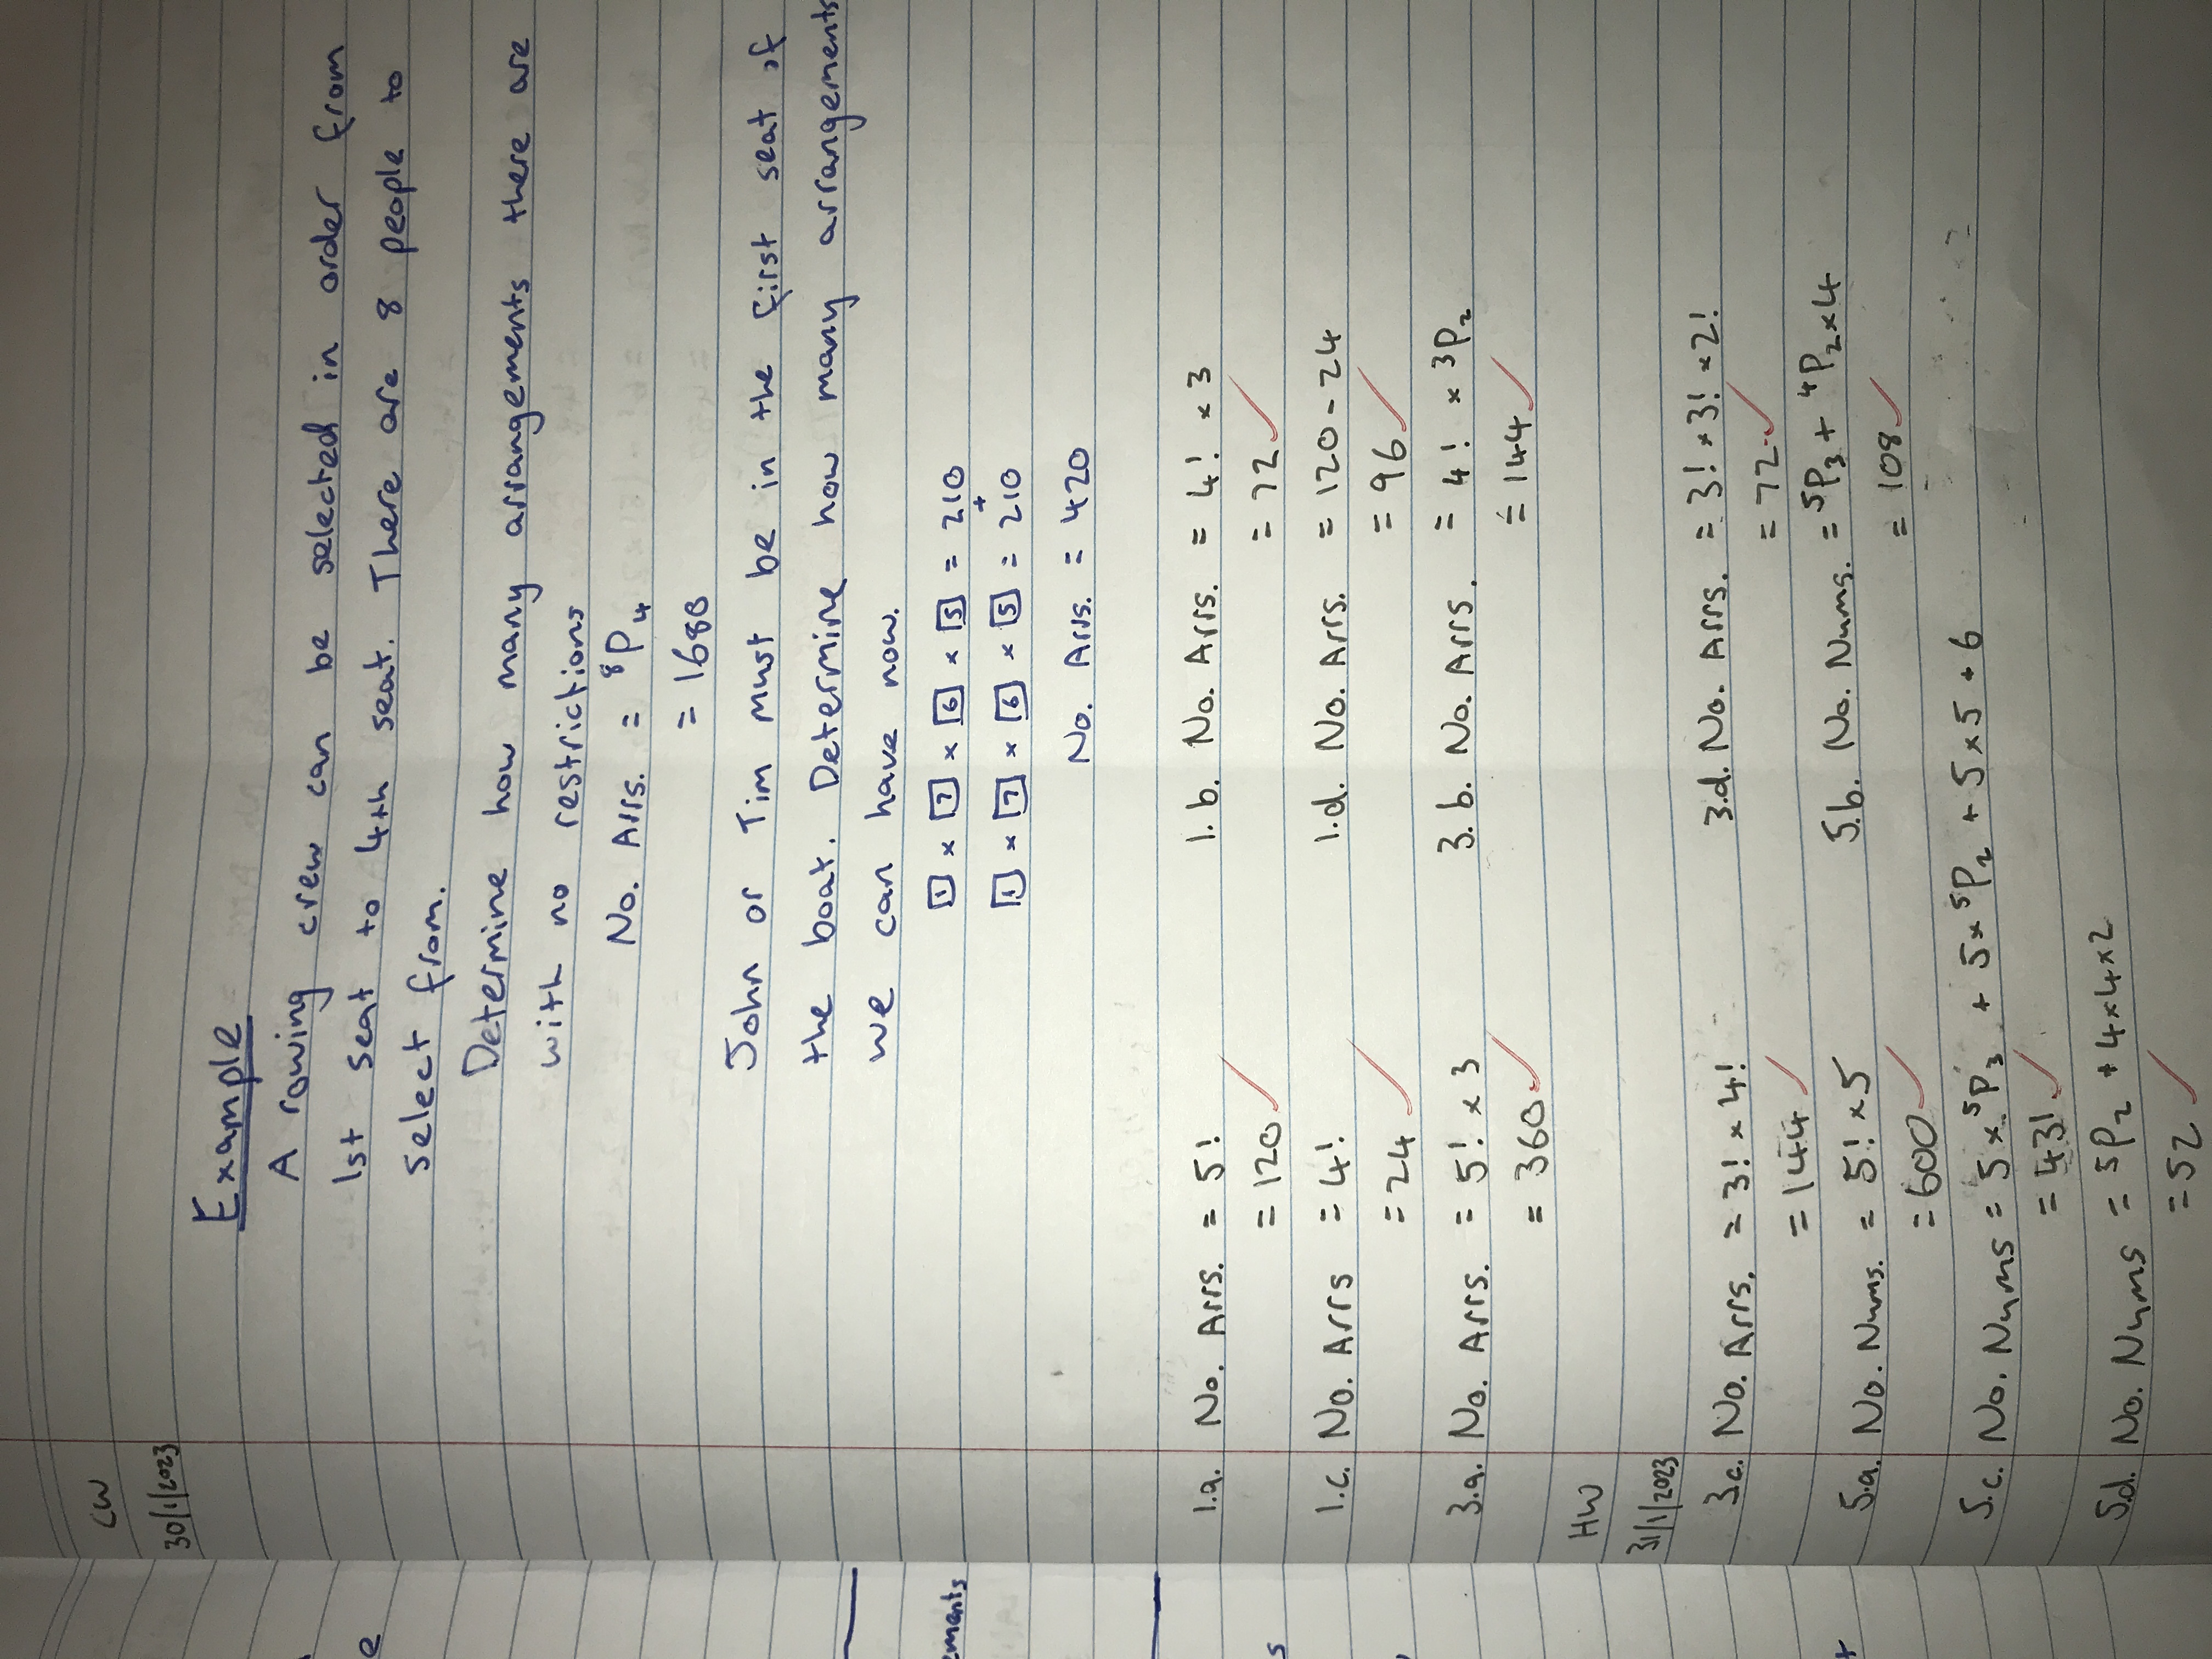 CW
30/1/2023
Example
A rowing crew can be selected in order from
1st seat to 4th seat. There are 8 people to
select from.
Determine how many arrangements there are
with no restrictions
No. Arrs. = ⁸P₄
= 1680
John or Tim must be in the first seat of
the boat. Determine how many arrangements
we can have now.
1 × 7 × 6 × 5 = 210
+
1 × 7 × 6 × 5 = 210
No. Arrs. = 420
1.a. No. Arrs. = 5!
= 120 ✓
1.b. No. Arrs. = 4! × 3
= 72 ✓
1.c. No. Arrs = 4!
= 24 ✓
1.d. No. Arrs. = 120 - 24
= 96 ✓
3.a. No. Arrs. = 5! × 3
= 360 ✓
3.b. No. Arrs. = 4! × ³P₂
= 144 ✓
HW
31/1/2023
3c. No. Arrs. = 3! × 4!
= 144 ✓
3.d. No. Arrs. = 3! × 3! × 2!
= 72 ✓
5.a. No. Nums. = 5! × 5
= 600 ✓
5.b. No. Nums. = ⁵P₃ + ⁴P₂ × 4
= 108 ✓
5.c. No. Nums = 5 × ⁵P₃ + 5 × ⁵P₂ + 5 × 5 + 6
= 431 ✓
5.d. No. Nums = ⁵P₂ + 4 × 4 × 2
= 52 ✓
e
ements
s